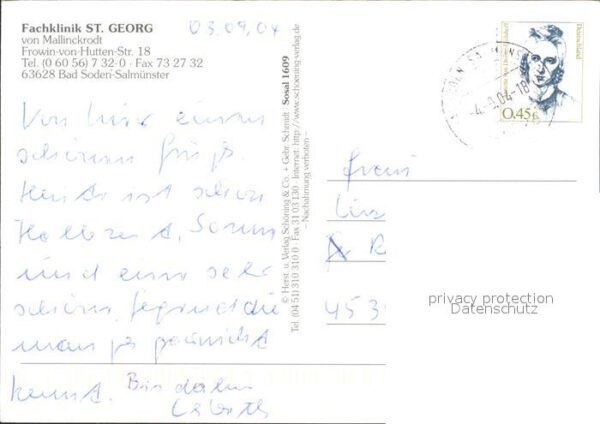 Fachklinik ST. GEORG
von Mallinckrodt
Frowin-von-Hutten-Str. 18
Tel. (0 60 56) 7 32-0 • Fax 73 27 32
63628 Bad Soden-Salmünster
03.09.04
Von hier einen
schönen
Heute ist schon
Halbzeit. Sonne
und eine sehr
schöne Gegend die
man gar nicht
kennt. Bis dahin
© Herst. u. Verlag Schöning & Co. + Gebr. Schmidt Sosal 1609
Tel. (04 51) 310 310 0 • Fax 31 03 130 • Internet: http://www.schoening-verlag.de
– Nachahmung verboten –
Deutschland
0,45€
04-18
Frau
453
privacy protection
Datenschutz